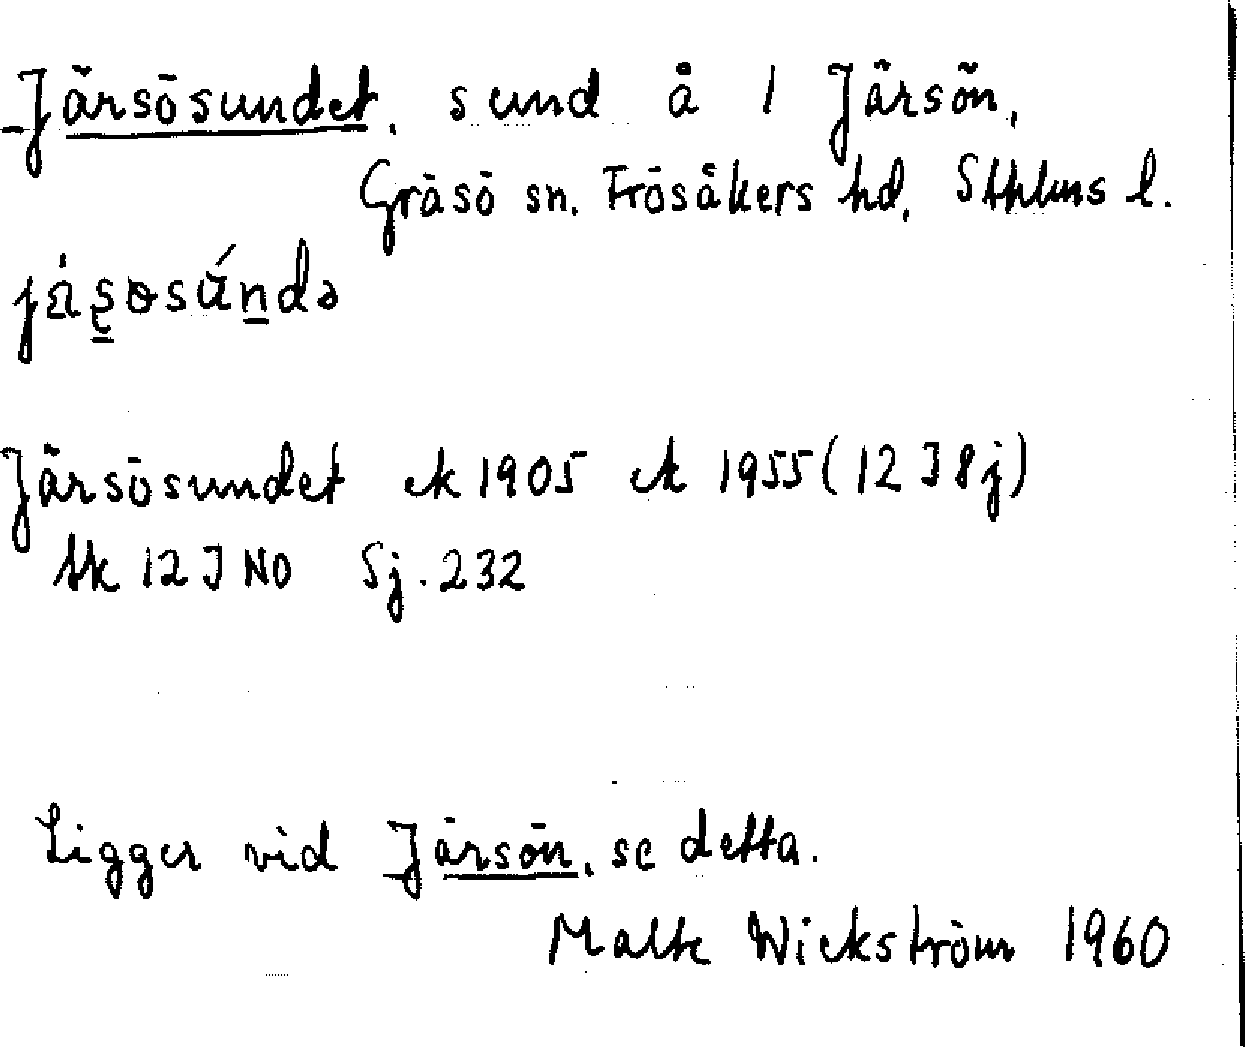 Järsösundet, sund å 1 Järsön,
Gräsö sn. Frösåkers hd, Sthlms l.
Järsösundet ek 1905 ek 1955 (12 I 8j)
tk 12 I NO Sj. 232
Ligger vid Järsön, se detta.
Malte Wickström 1960